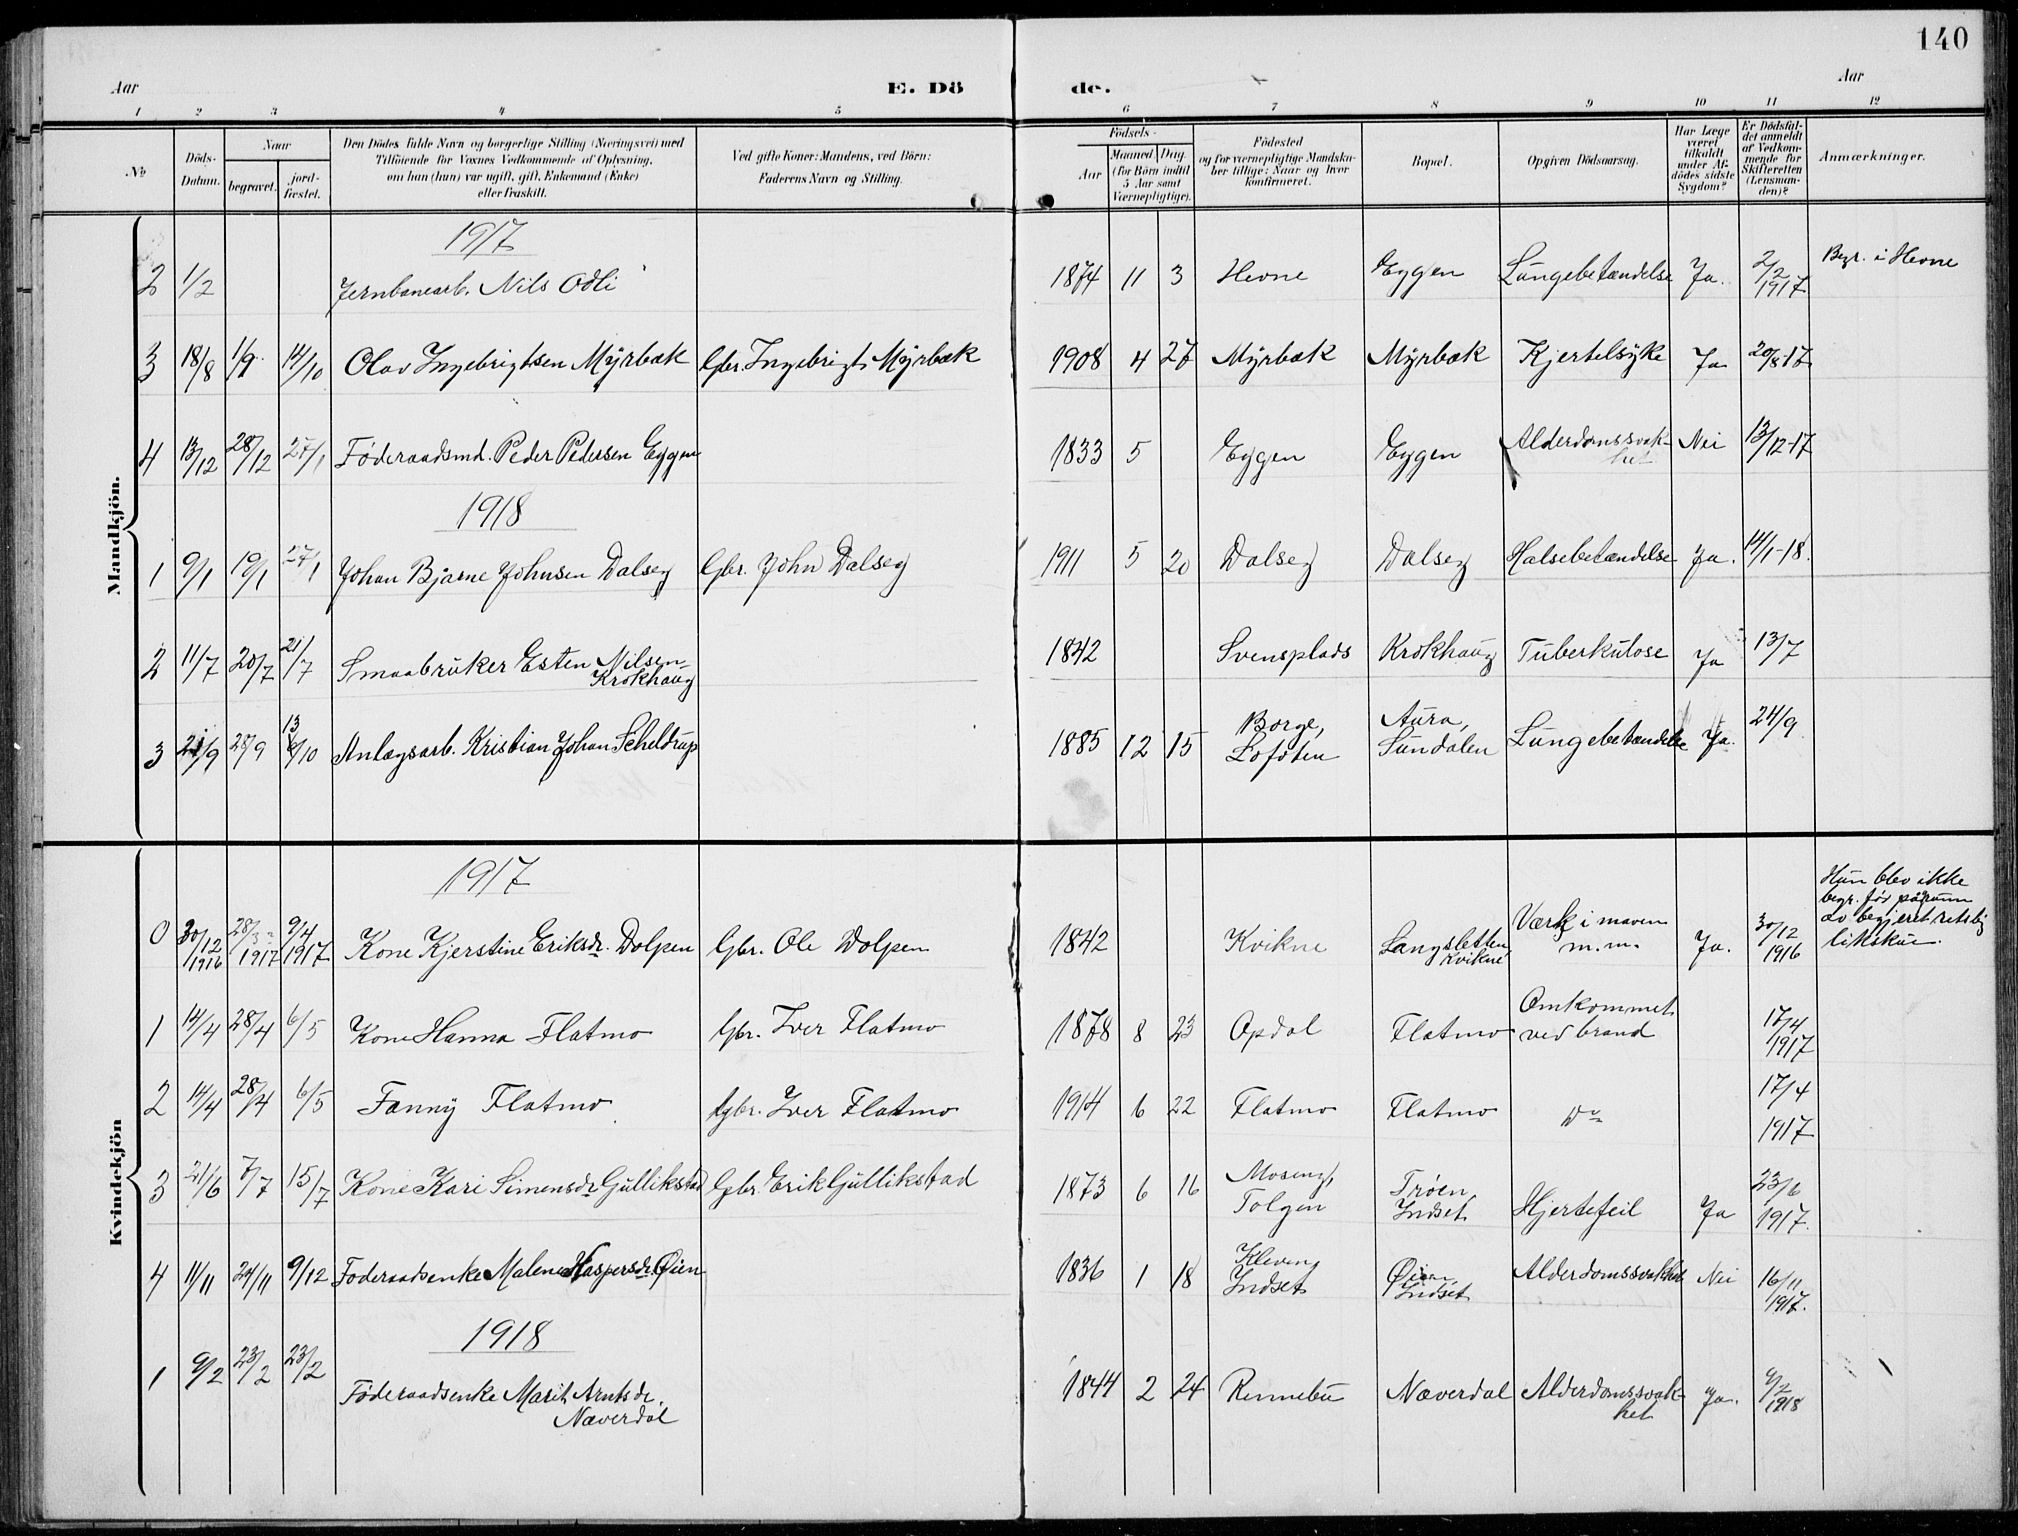 140
Aar
E. Dö
de.
Aar
1 2 3 4 5 6 7 8 9 10 11 12
No
Döds-
Datum.
Naar
begravet.
jord-
fæstet.
Den Dödes fulde Navn og borgerlige Stilling (Næringsvei) med
Tilföiende for Voxnes Vedkommende af Oplysning,
om han (hun) var ugift, gift, Enkemand (Enke)
eller fraskilt.
Ved gifte Koner: Mandens, ved Börn:
Faderens Navn og Stilling.
Födsels-
Aar
Maaned Dag.
(for Börn indtil
5 Aar samt
Værnepligtige).
Födested
og for værnepligtige Mandska-
ber tillige: Naar og hvor
konfirmeret.
Bopæl.
Opgiven Dödsaarsag.
Har Læge
været
tilkaldt
under Af-
dödes sidste
Sygdom?
Er Dödsfal-
det anmeldt
af Vedkom-
mende for
Skifteretten
(Lensman-
den)?
Anmærkninger.
Mandkjön.
1917
2 1/2 Jernbanearb. Nils Odli 1874 11 3 Hevne Eggen Lungebetændelse Ja. 2/2 1917 Begr. i Hevne
3 18/8 1/9. 14/10 Olav Ingebrigtsen Myrbæk Gbr. Ingebrigt Myrbæk 1908 4 27 Myrbæk Myrbæk Kjertelsyke Ja 20/8-17
4 13/12 28/12 27/1 Føderaadsmd. Peder Pedersen Eggen 1833 5 Eggen Eggen Alderdomssvak-
het Nei 13/12-17
1918
1 9/1 19/1 27/1 Johan Bjarne Johnsen Dalseg Gbr. John Dalseg 1911 5 20 Dalseg Dalseg Halsebetændelse Ja. 14/1-18.
2 11/7 20/7 21/7 Smaabruker Esten Nilsen
Krokhaug 1842 Svensplads Krokhaug Tuberkulose Ja 13/7
3 21/9 28/9 13/10 Anlægsarb. Kristian Johan Scheldrup 1885 12 15 Borge,
Lofoten Aura,
Sundalen Lungebetændelse Ja. 24/9
Kvindekjön
1917
0 30/12 1916 28/3 1917 9/4 1917 Kone Kjerstine Eriksdr. Dolpen Gbr. Ole Dolpen 1842 Kvikne Langsletten,
Kvikne Værk i maven
m.m. Ja. 30/12 1916 Hun blev ikke
begr. før pågrunn
av begjeret retslig
likskue.
1 14/4 28/4 6/5 Kone Hanna Flatmo Gbr. Iver Flatmo 1878 8 23 Opdal Flatmo Omkommet
ved brand 17/4 1917
2 14/4 28/4 6/5 Fanny Flatmo Gbr. Iver Flatmo 1914 6 22 Flatmo Flatmo Do 17/4 1917
3 21/6 7/7 15/7 Kone Kari Simensdr Gullikstad Gbr. Erik Gullikstad 1873 6 16 Moseng,
Tolgen Trøen,
Indset Hjertefeil Ja 23/6 1917.
4 11/11 24/11 9/12 Føderaadsenke Malene Kaspersdr. Øien 1836 1 18 Kleven,
Indset Øien,
Indset Alderdomssvakhet Nei 16/11 1917.
1918
1 9/2 23/2 23/2 Føderaadsenke Marit Arntsdr.
Næverdal 1844 2 24 Rennebu Næverdal Alderdomssvak-
het Ja. 9/2 1918